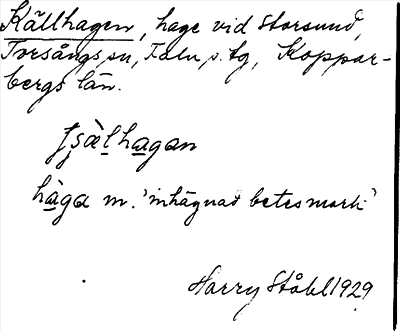 Källhagen, hage vid Storsund,
Torsångs sn, Falu s. tg, Koppar-
bergs län.
ʃʂæ̀lhagan
hàga m. 'inhägnad betesmark'
Harry Ståhl 1929